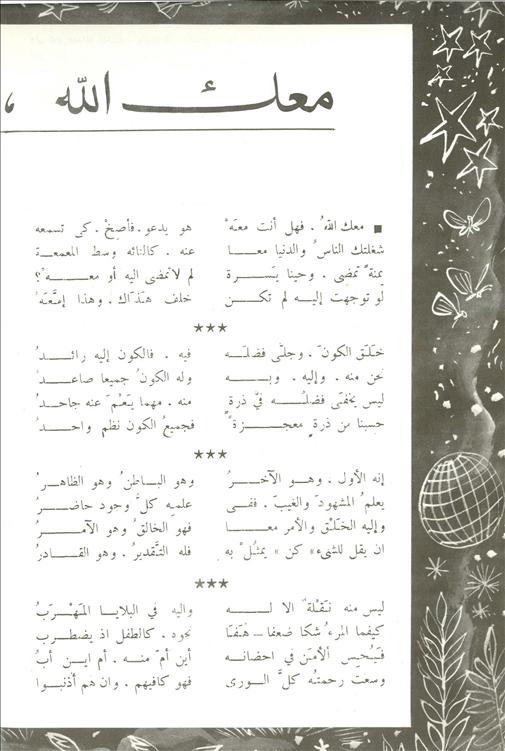 معك الله ،
■ معك اللهُ . فهل أنت معَهْ هو يدعو . فأصِخْ . كى تسمعه
شغلتك الناسُ والدنيا معا عنه . كالتائه وسط المعمعة
يمنةً تمضى . وحينا يَسْرة لم لا تمضى اليه أو معه ؟
لو توجهت إليه لم تكن خلف هَذاك . وهذا إمَّعَهْ
***
خلَق الكونَ . وجلّى فضله فيه . فالكون إليه رائدُ
نحن منه . وإليه . وبه وله الكونُ جميعا صاعدُ
ليس يخفَى فضلُه فىَّ ذرة منه . مهما يَعْمَ عنه جاحدُ
حسبنا من ذرةٍ معجزةٌ فجميعُ الكون نظم واحدُ
***
إنه الأول . وهو الآخرُ وهو الباطنُ وهو الظاهرُ
يعلمُ المشهودَ والغيبَ . ففى علمِه كلُّ وجود حاضرُ
وإليه الخَلْق والأمر معا فهو الخالقُ وهو الآمرُ
ان يقل للشىء « كن » يمثُلْ به فله التَّقديرُ . وهو القادرُ
***
ليس منه نَقْلةٌ الا له واليه في البلايا المَهْرَبُ
كيفما المرءُ شكا ضعفا ــ هَفَا نحوه . كالطفل اذ يضطرب
فيُحِس الأمنَ في احضانه أين أم منه . أم اين أبُ
وسعت رحمتُه كلَّ الورى فهو كافيهم . وان هم أذنبوا